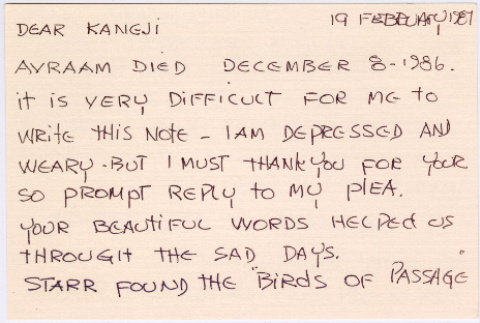 19 FEBRUARY 1987
DEAR KANEJI
AVRAAM DIED DECEMBER 8-1986.
it IS VERY DIFFICULT FOR ME to
WRITE tHIS NOtE - I AM DEPRESSED AND
WEARY - BUT I MUST THANK YOU FOR YOUR
SO PROMPT REPLY tO MY PLEA.
YOUR BEAUTIFUL WORDS HELPED US
tHROUGH THE SAD DAYS.
STARR FOUND THE "BIRDS OF PASSAGE"